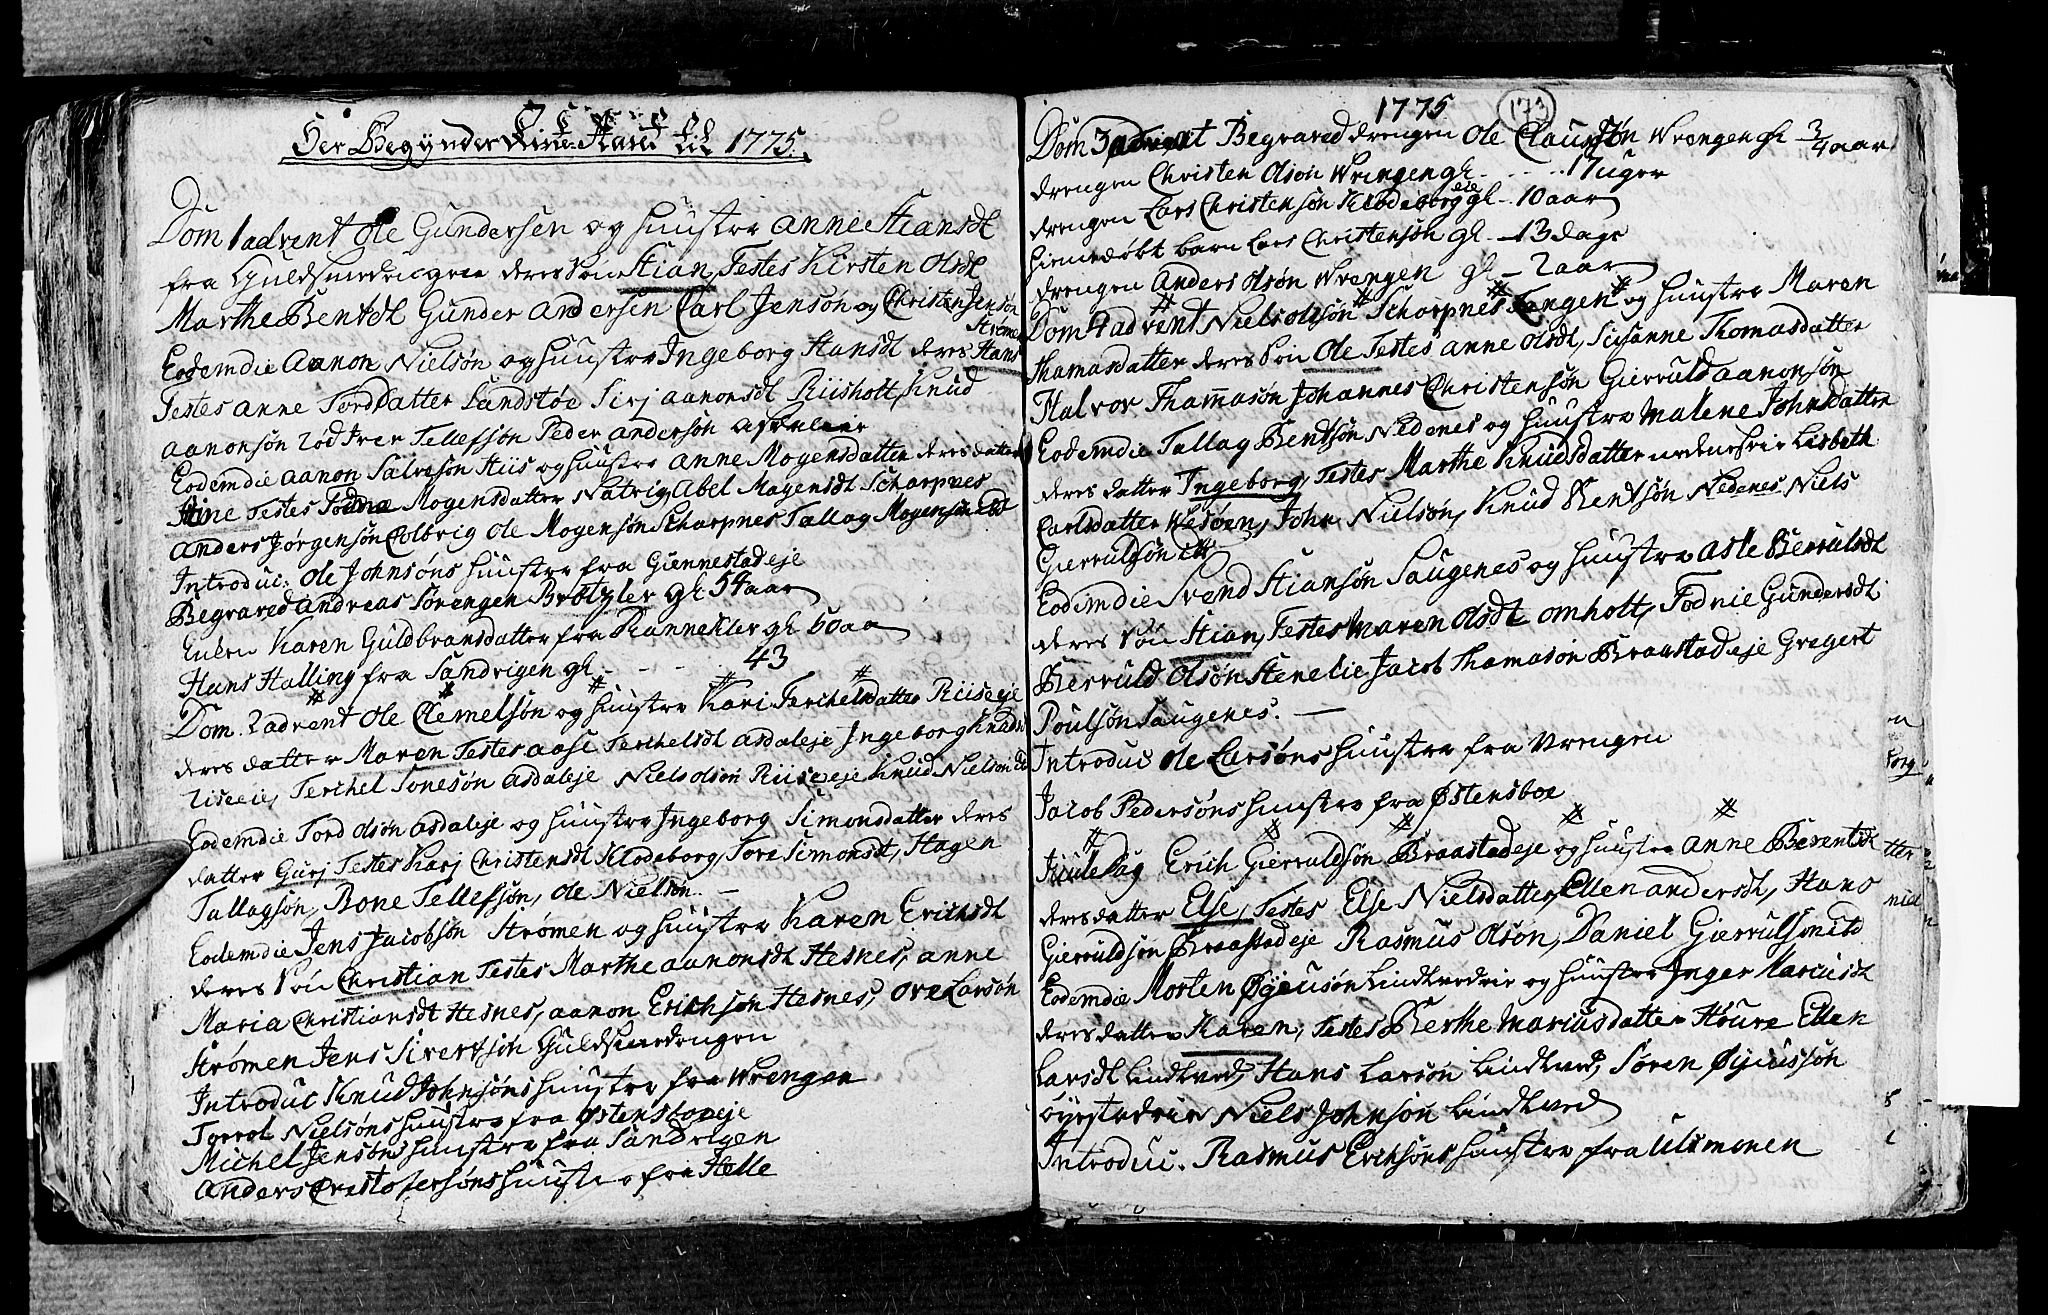 Her Begÿnder Kirke Aaret til 1775.
Dom 1 advent Ole Gundersen og Hustru anne Stiansdt
fra Guldsmedengen deres Søn Stian, Testes Kirsten Olsdt
Marthe Bentdt Gunder andersen Carl Jensøn og Christen Jensøn
Strømen
Eodemdie Aanon Nielsøn og Hustru Ingeborg Hansdt deres Hans
Testes anne Tordsdatter Sandstøe Sirj aanonsdt Riisholt, Knud
aanonsøn Iver Tellefsøn Peder andersøn
Eodemdie aanon Salvesøn Riis og Hustru anne Mogensdatter deres datter
Stine Testes Todne Mogensdatter Natvig, Abel Mogensdt Scharpnes
anders Jørgensøn Colbrig Ole Mogensøn Scharpnes Tallag Mogensøn ibd
Introduc: Ole Johnsøns Hustru fra Giennestadeje
Begraved Andreas Sørengen gl 54 aar
Enken Karen Guldbransdatter fra gl 60 aa
Hans Halling fra Sandvigen gl - - - 43
Dom. 2 advent Ole Clemetsøn og Hustru Kari Terchelsdatter Riiseeje
deres datter Maren Testes aase Terchelsdt asdaleje Ingeborg Knudsdt
Riiseeie, Terchel Tonesøn asdaleje Niels olsøn Riiseeje Knud Nielsøn ibd
Eodemdie Tord olsøn asdaleje og Hustru Ingeborg Simonsdatter deres
datter Gurj Testes Karj Christensdt Klodeborg, Tore Simonsdt, Hagen
Tallagsøn, Bone Tellefsøn, Ole Nielsøn. -
Eodemdie Jens Jacobsøn Strømen og Hustru Karen Erichsdt
deres Søn Christian Testes Marthe aanonsdt Hesnes, anne
Maria Christiansdt Hesnes, aanon Erichsøn Hesnes, Ove Larsøn
Strømen Jens Sivertsøn Guldsmedengen
Introduc Knud Johnsøns Hustru fra Wrengen
Torrol Nielsøns Hustru fra Østensboeeje
Michel Jensøns Hustru fra Sandvigen
anders Cristofersøns Hustru fra Helle
1775 173
Dom 3 advent Begraved drengen Ole Claussøn Wrengen gl 3/4 aar
drengen Christen Olsøn Wrengen gl - - - 17 uger
drengen Lars Christensøn Klodeborg eie gl - 10 aar
hiemedøbt barn Lars Christensøn gl - 13 dage
drengen Anders Olsøn Wrengen gl - 2 aar
Dom 4 advent Niels olssøn Scharpnes Tangen og Hustru Maren
Thomasdatter deres Søn Ole Testes anne Olsdt, Susanne Thomasdatter
Halvor Thomasøn Johannes Christensøn Gierruld aanonsøn
Eodemdie Tallag Bentsøn Nedenes og Hustru Malene Johnsdatter
deres datter Ingeborg, Testes Marthe Knudsdatter nedeneseie Lisbeth
Carlsdatter Wesøen, John Nielsøn, Knud Bentsøn Nedenes Niels
Gierrulsøn ibd
Eodemdie Svend Stiansøn Saugenes og Hustru asle Berrulsdt
deres Søn Stian, Testes Maren Olsdt omholt, Todnie Gundersdt
Berruld Olsøn Stenelie Jacob Thomasøn Braastadeje Gregert
Poulsøn Saugenes. —
Introduc Ole Larsøns Hustru fra Vrengen
Jacob Pedersøns Hustru fra Østensboe
Juule Dag Erich Gierrulssøn Braastadeje og Hustru anne Berentsdt
deres datter Else, Testes Else Nielsdatter, Ellen andersdt, Hans
Gierruldsøn Braastadeje Rasmus Olsøn, Daniel Gierrulsøn ibd
Eodemdie Morten Øyeusøn Lindtvedeie og Hustru Inger Mariusdt
deres datter Karen, Testes Berthe Mariusdatter Høure Ellen
Larsdt Lindtved, Hans Larsøn Lindtved, Søren Øyeussøn
Øyestadeie Niels Johnsøn Lindtved
Introduc. Rasmus Eriksøns Hustru fra Ulsmonen